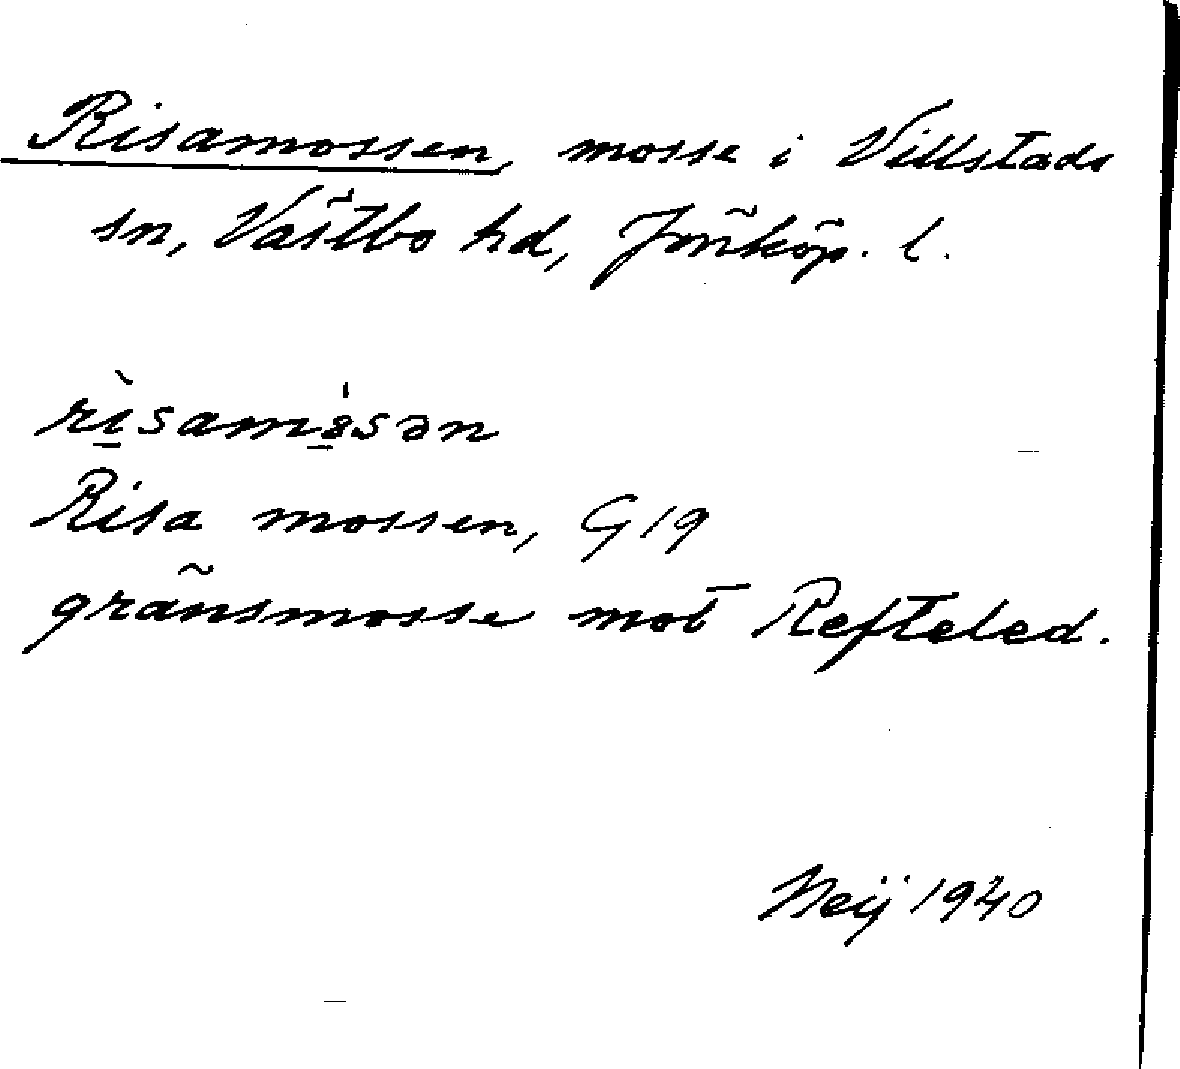 Risamossen, mosse i Villstads
sn, Västbo hd, Jönköp. l.
rìsamȯsən
Risa mossen, G 19
gränsmosse mot Refteled.
Neij 1940